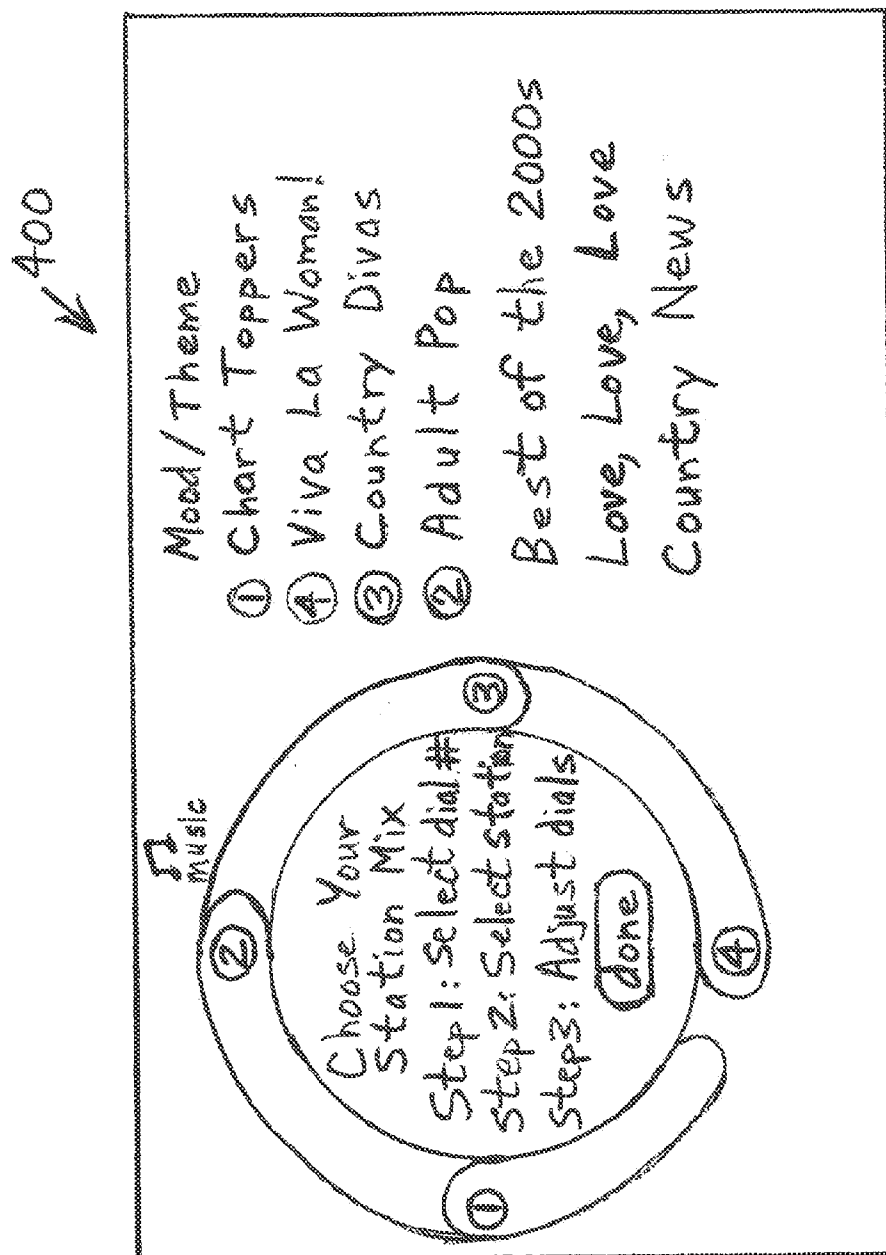 400
music
②
Choose Your
Station Mix
Step1: Select dial #
Step2: Select station
Step3: Adjust dials
done
①
③
④
Mood/Theme
① Chart Toppers
④ Viva La Woman!
③ Country Divas
② Adult Pop
Best of the 2000s
Love, Love, Love
Country News